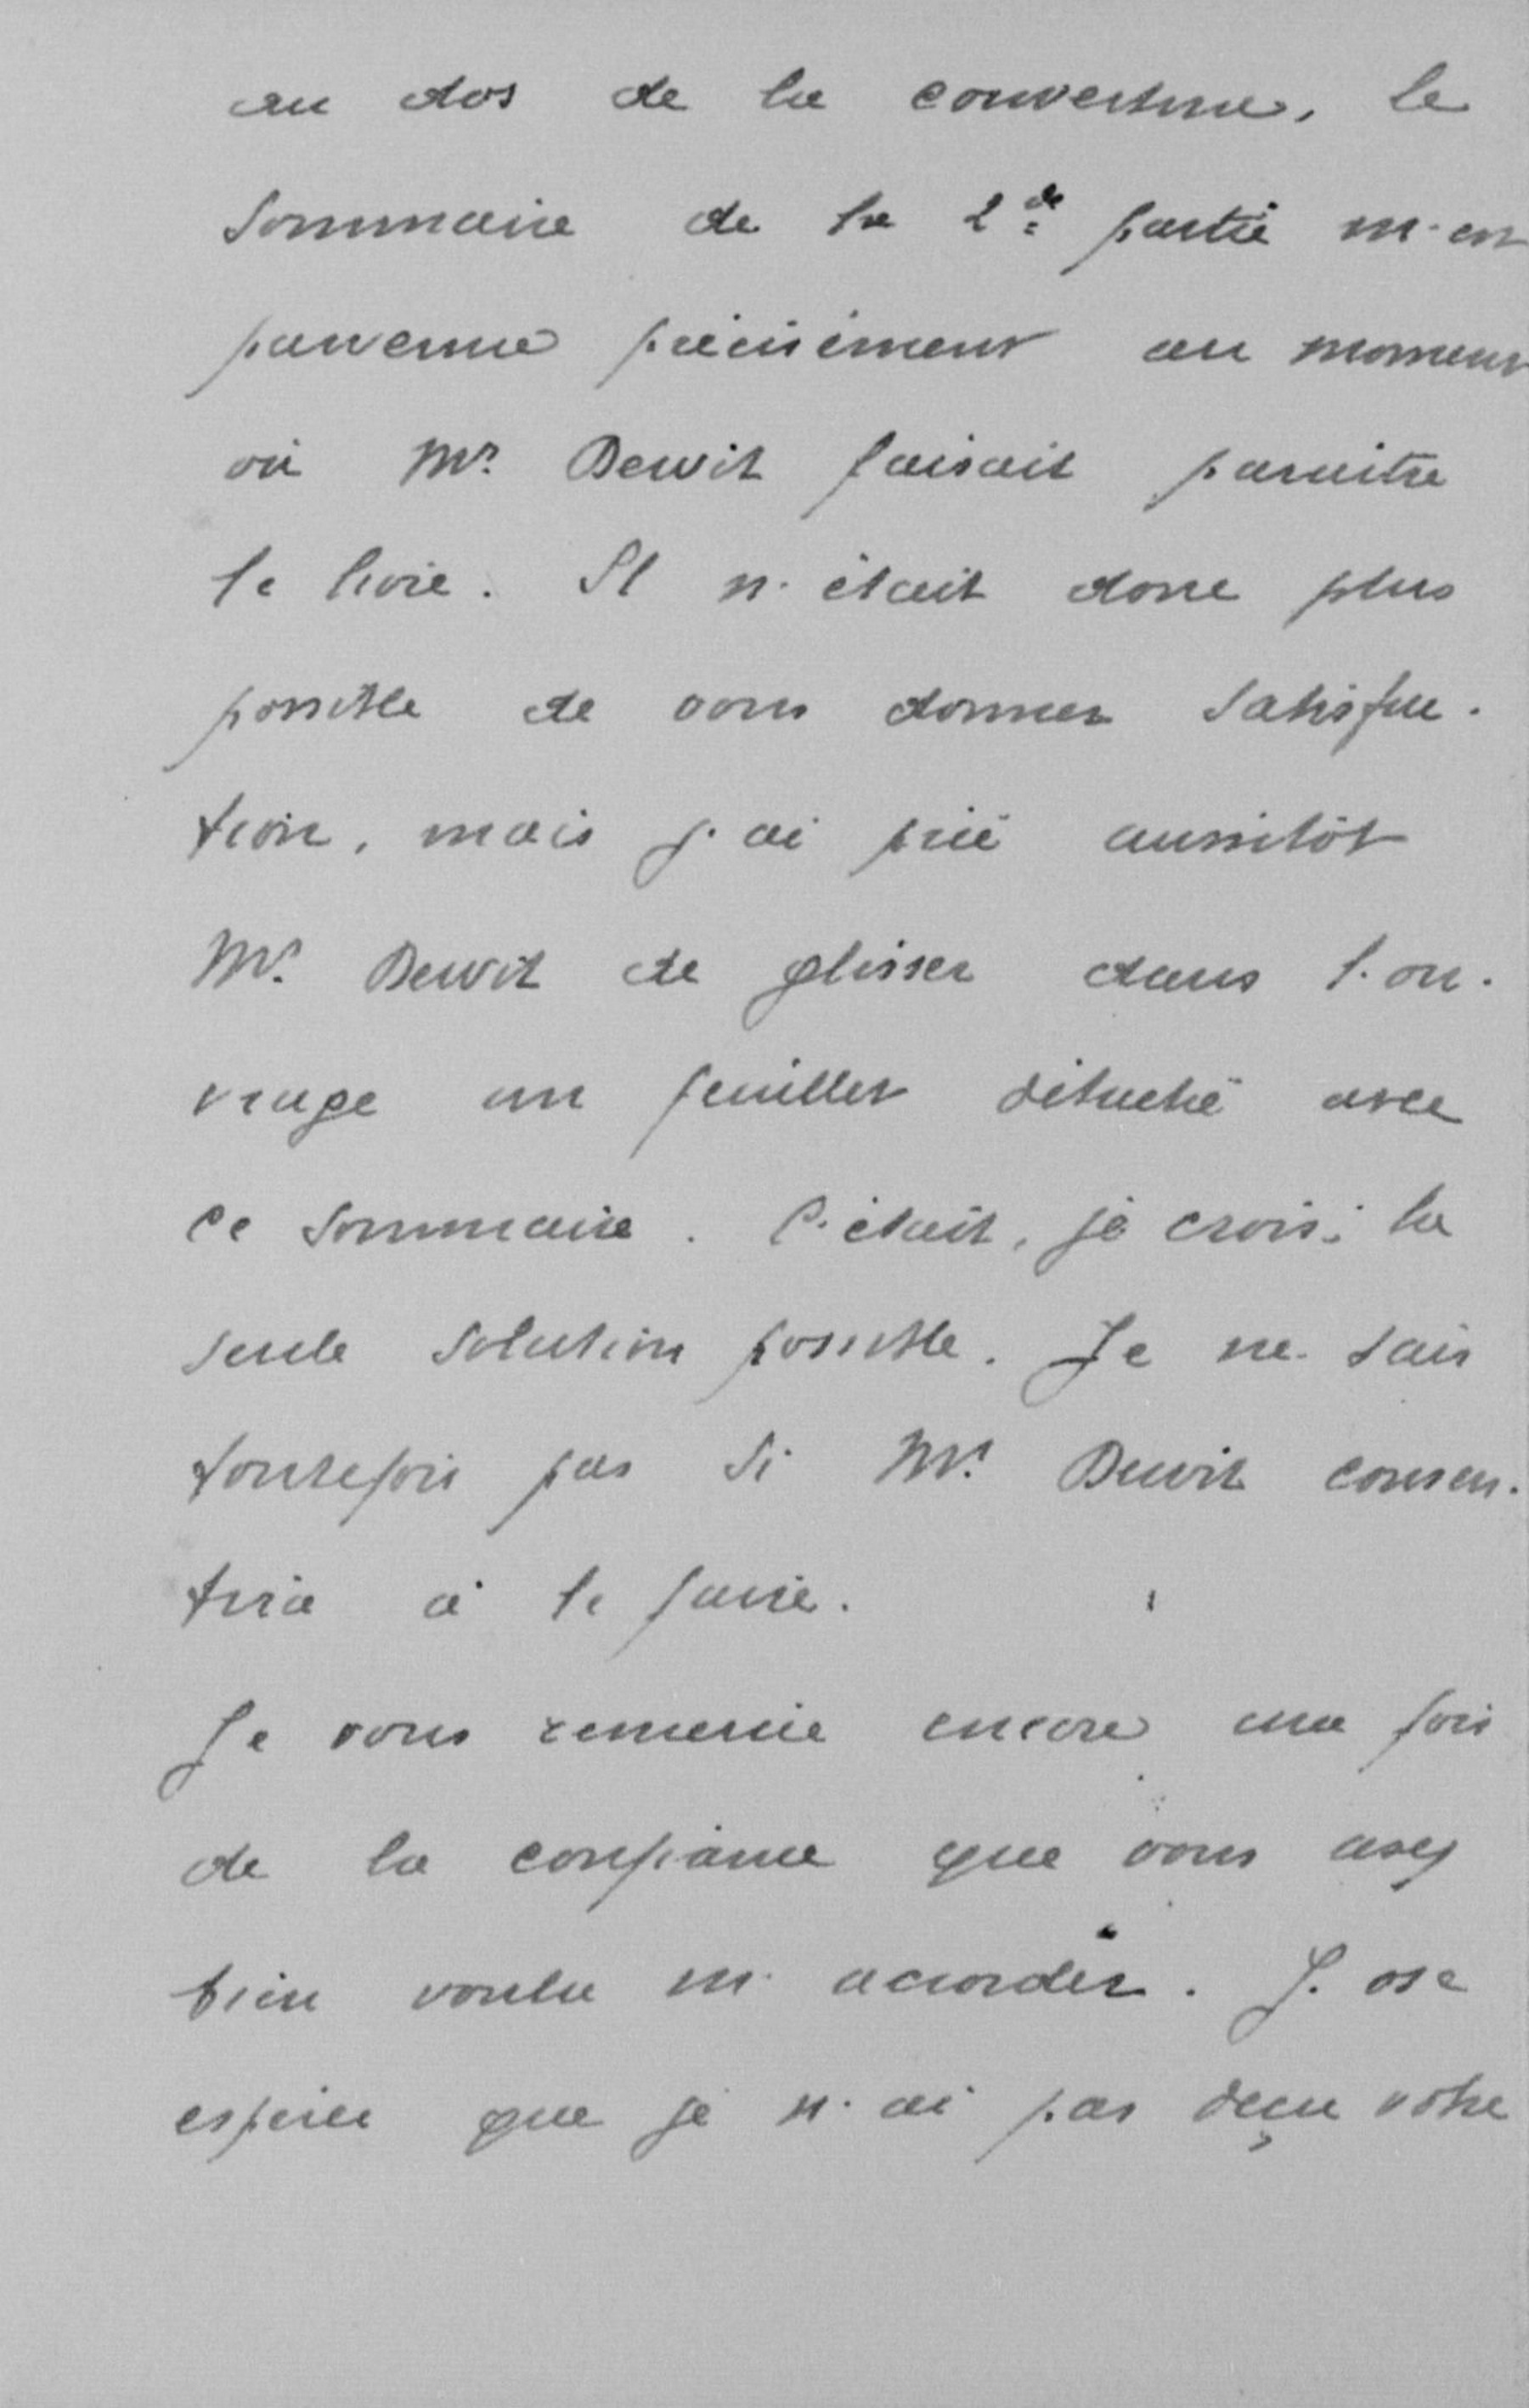 au dos de la couverture, le
sommaire de la 2de partie m'est
parvenue précisément au moment
où Mr Dewit faisait paraître
le livre. Il n'était donc plus
possible de vous donner satisfac-
tion, mais j'ai prié aussitôt
Mr Dewit de glisser dans l'ou-
vrage un feuillet détaché avec
ce sommaire. C'était, je crois, la
seule solution possible. Je ne sais
toutefois pas si Mr Dewit consen-
tira à le faire.
Je vous remercie encore une fois
de la confiance que vous avez
bien voulu m'accorder. J'ose
espérer que je n'ai pas déçu votre